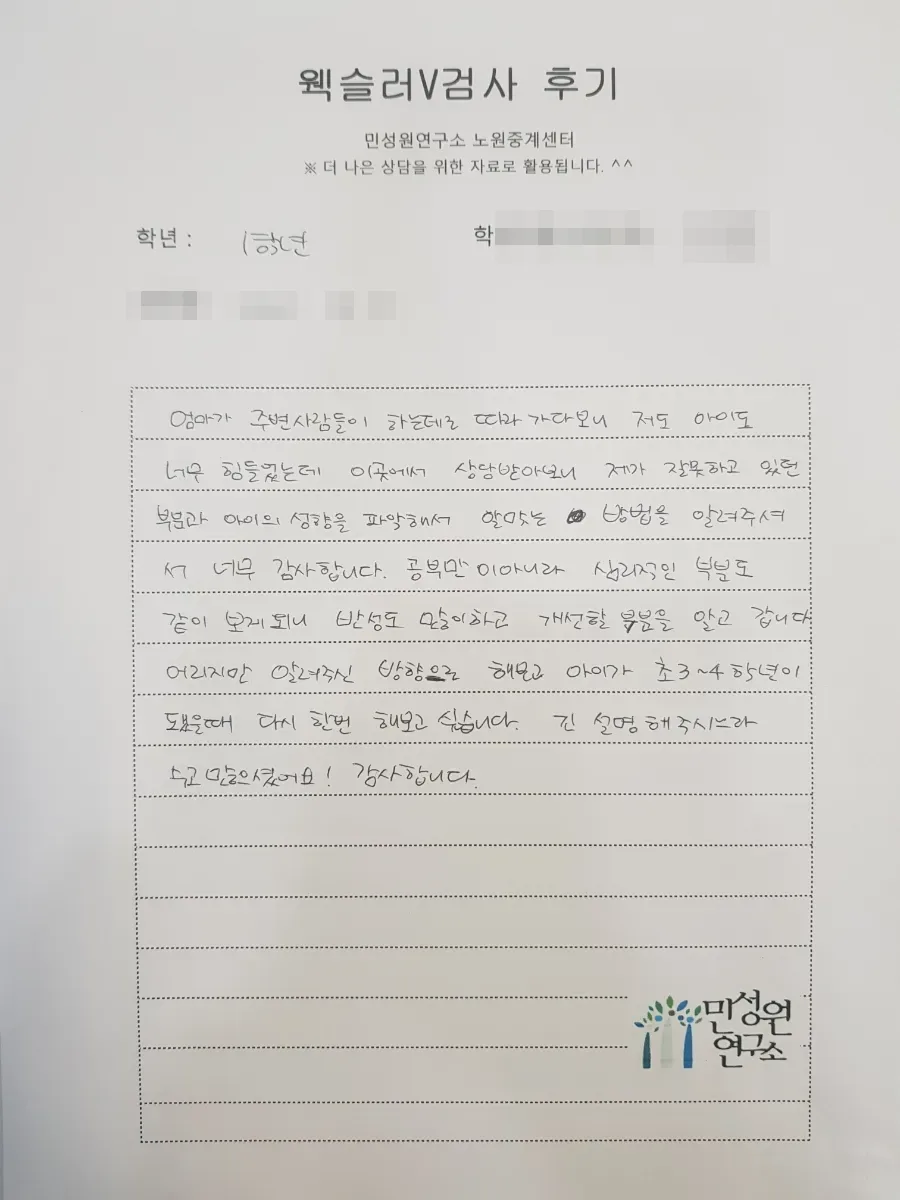 웩슬러V검사 후기
민성원연구소 노원중계센터
※ 더 나은 상담을 위한 자료로 활용됩니다. ^^
학년 : 1학년 학
엄마가 주변사람들이 하는데로 따라가다보니 저도 아이도
너무 힘들었는데 이곳에서 상담받아보니 제가 잘못하고 있던
부분과 아이의 성향을 파악해서 알맞는 방법을 알려주셔
서 너무 감사합니다. 공부만이아니라 심리적인 부분도
같이 보게되니 반성도 많이하고 개선할 부분을 알고 갑니다
어리지만 알려주신 방향으로 해보고 아이가 초3~4학년이
됐을때 다시 한번 해보고 싶습니다. 긴 설명해주시느라
수고많으셨어요! 감사합니다.
민성원
연구소